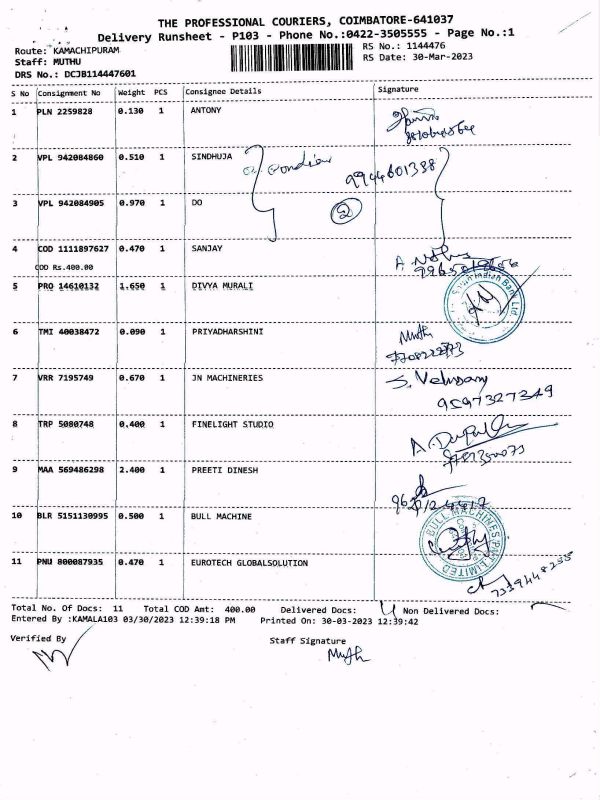 THE PROFESSIONAL COURIERS, COIMBATORE-641037
Delivery Runsheet - P103 - Phone No.:0422-3505555 - Page No.:1
Route: KAMACHIPURAM
RS No.: 1144476
Staff: MUTHU
RS Date: 30-Mar-2023
DRS No.: DCJB114447601
S No Consignment No Weight PCS Consignee Details Signature
1 PLN 2259828 0.130 1 ANTONY
2 VPL 942084860 0.510 1 SINDHUJA
9944601338
3 VPL 942084905 0.970 1 DO
2
4 COD 1111897627 0.470 1 SANJAY
COD Rs.400.00
5 PRO 14610132 1.650 1 DIVYA MURALI
South Indian Bank Ltd.
6 TMI 40038472 0.090 1 PRIYADHARSHINI
Muth
7 VRR 7195749 0.670 1 JN MACHINERIES
9597327349
8 TRP 5080748 0.400 1 FINELIGHT STUDIO
9 MAA 569486298 2.400 1 PREETI DINESH
10 BLR 5151130995 0.500 1 BULL MACHINE
BULL MACHINES PVT LIMITED
11 PNU 800087935 0.470 1 EUROTECH GLOBALSOLUTION
7339448235
Total No. Of Docs: 11 Total COD Amt: 400.00 Delivered Docs: 11 Non Delivered Docs:
Entered By :KAMALA103 03/30/2023 12:39:18 PM Printed On: 30-03-2023 12:39:42
Verified By
Staff Signature
Muth